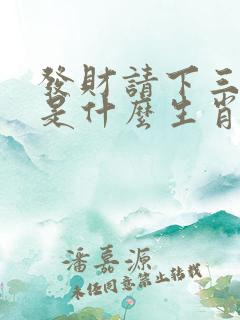 發財請下三
是什麼生肖
潘嘉源
未任同意禁止转载